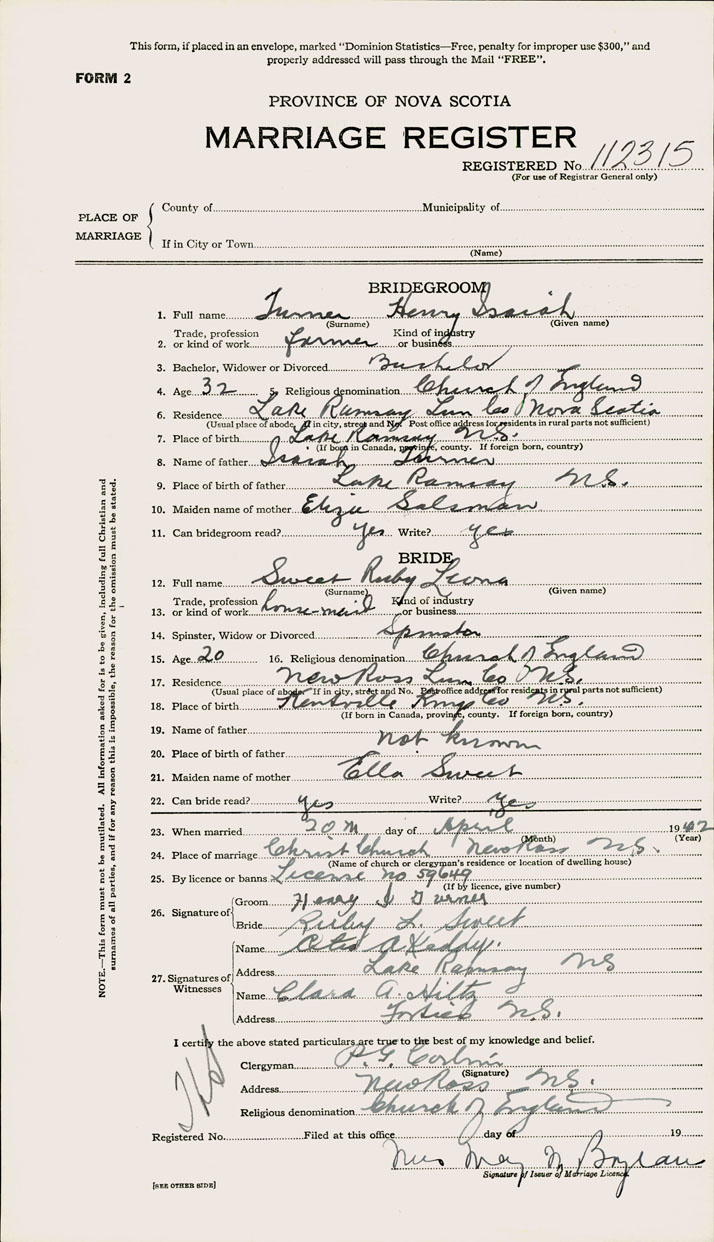 This form, if placed in an envelope, marked "Dominion Statistics—Free, penalty for improper use $300," and
properly addressed will pass through the Mail "FREE".
FORM 2
PROVINCE OF NOVA SCOTIA
MARRIAGE REGISTER
REGISTERED No. 112315
(For use of Registrar General only)
PLACE OF MARRIAGE
County of Municipality of
If in City or Town
(Name)
BRIDEGROOM
1. Full name Turner Henry Isaiah
(Surname) (Given name)
2. Trade, profession or kind of work farmer Kind of industry or business
3. Bachelor, Widower or Divorced Bachelor
4. Age 32 5. Religious denomination Church of England
6. Residence Lake Ramsay Lun Co Nova Scotia
(Usual place of abode. If in city, street and No. Post office address for residents in rural parts not sufficient)
7. Place of birth Lake Ramsay N.S.
(If born in Canada, province, county. If foreign born, country)
8. Name of father Isaiah Turner
9. Place of birth of father Lake Ramsay N.S.
10. Maiden name of mother Elizie Salsman
11. Can bridegroom read? Yes Write? yes
BRIDE
12. Full name Sweet Ruby Leona
(Surname) (Given name)
13. Trade, profession or kind of work house-maid Kind of industry or business
14. Spinster, Widow or Divorced Spinster
15. Age 20 16. Religious denomination Church of England
17. Residence New Ross Lun Co N.S.
(Usual place of abode. If in city, street and No. Post office address for residents in rural parts not sufficient)
18. Place of birth Kentville Kings Co N.S.
(If born in Canada, province, county. If foreign born, country)
19. Name of father not known
20. Place of birth of father
21. Maiden name of mother Ella Sweet
22. Can bride read? yes Write? Yes
23. When married 20th day of April 1942
(Month) (Year)
24. Place of marriage Christ Church New Ross N.S.
(Name of church or clergyman's residence or location of dwelling house)
25. By licence or banns License no 59649
(If by licence, give number)
26. Signature of Groom Henry I Turner
Bride Ruby L. Sweet
27. Signatures of Witnesses
Name Otis A Keddy.
Address Lake Ramsay NS
Name Clara A. Hiltz
Address Forties N.S.
I certify the above stated particulars are true to the best of my knowledge and belief.
Clergyman P.G. Corbin
(Signature)
Address New Ross N.S.
Religious denomination Church of England
Registered No. Filed at this office day of 19
Mrs May N Boylan
Signature of Issuer of Marriage Licence
[SEE OTHER SIDE]
NOTE.—This form must not be mutilated. All information asked for is to be given, including full Christian and
surnames of all parties, and if for any reason this is impossible, the reason for the omission must be stated.